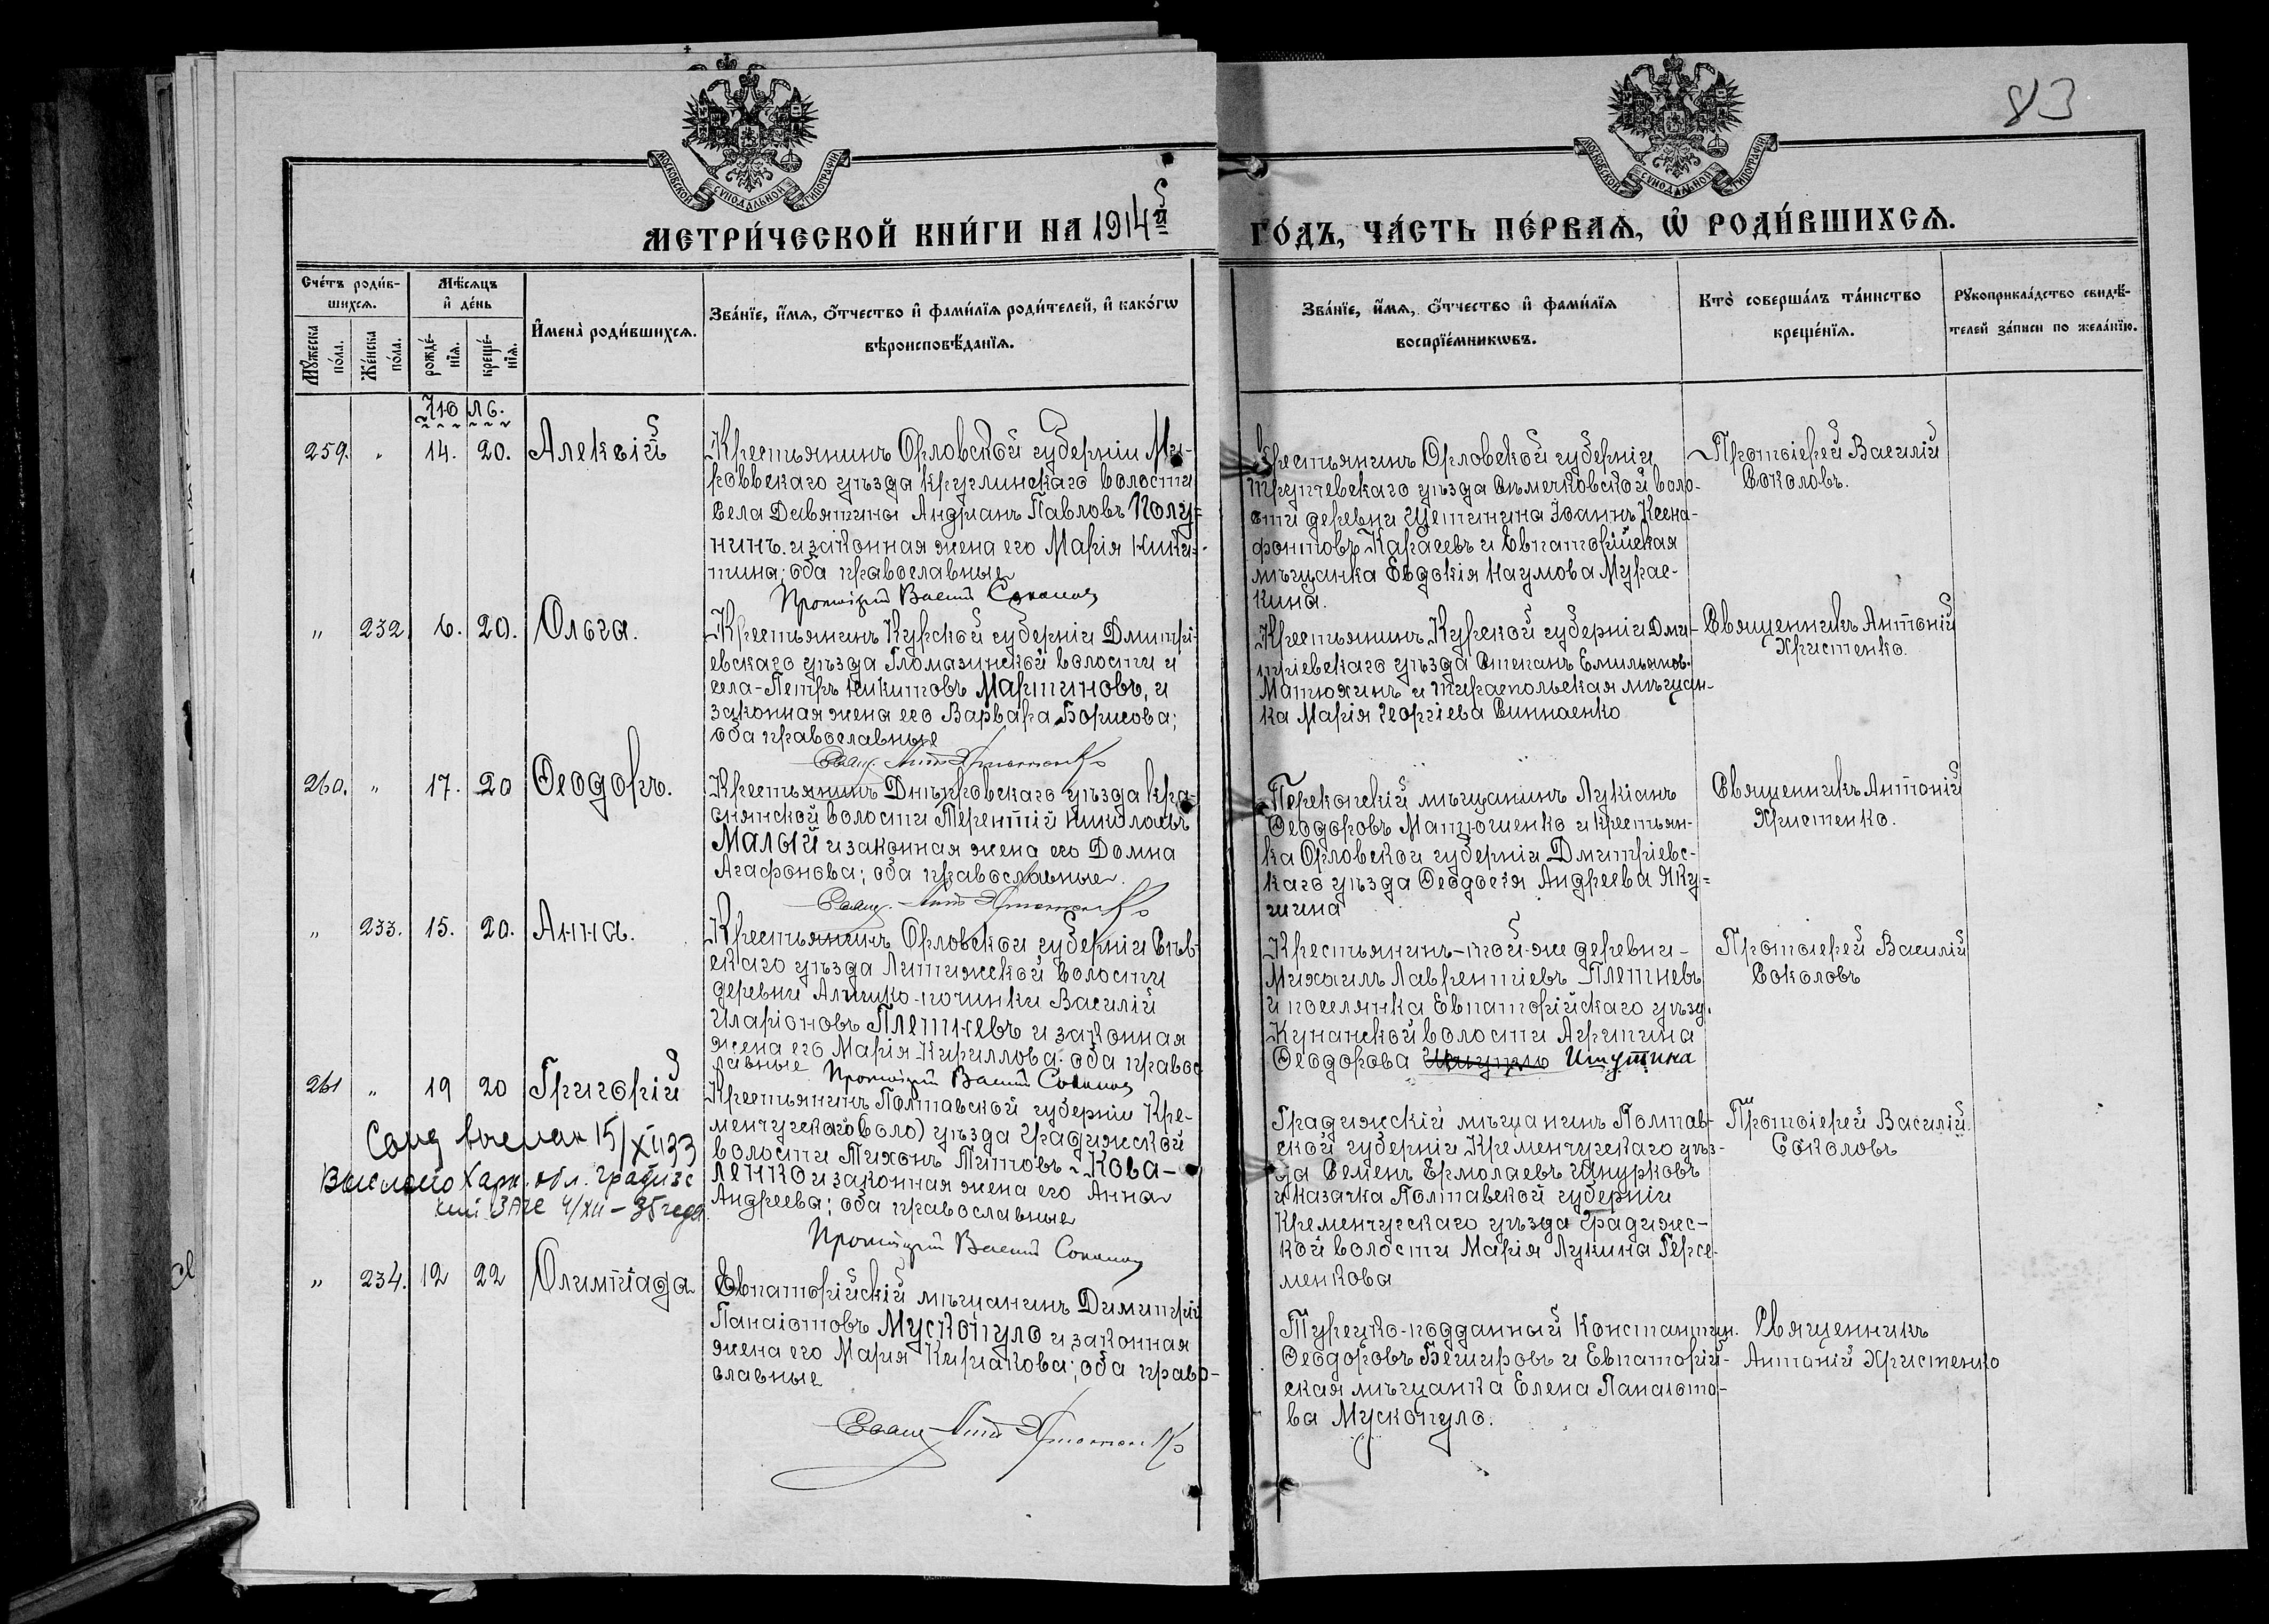 83
МОСКОВСКОЙ СѴНОДАЛЬНОЙ ТИПОГРАФІИ
МОСКОВСКОЙ СѴНОДАЛЬНОЙ ТИПОГРАФІИ
МЕТРИ́ЧЕСКОЙ КНИ́ГИ НА 1914й
ГО́ДЪ, ЧА́СТЬ ПЕ́РВАѦ, Ѡ҆ РОДИ́ВШИХСѦ.
Сче́тъ роди́в-
шихсѧ.
Мꙋжеска
по́ла.
Же́нска
по́ла.
Мѣ́сѧцъ
и҆ де́нь
рожде́-
нїѧ.
креще́-
нїѧ.
И҆мена̀ роди́вшихсѧ.
Зва́нїе, и҆́мѧ, ѻ҆́тчество и҆ фами́лїѧ роди́телей, и҆ како́гѡ
вѣроисповѣ́данїѧ.
Зва́нїе, и҆́мѧ, ѻ҆́тчество и҆ фами́лїѧ
воспрїе́мникѡвъ.
Кто̀ соверша́лъ та́инство
креще́нїѧ.
Рꙋкоприкла́дство свидѣ́-
телей за́писи по жела́нїю.
Іюль.
259. " 14. 20. Алексій
Крестьянинъ Орловской губерніи
уѣзда Круглинскаго волости
села Дивятина Андріанъ Павловъ Полу=
нинъ и законная жена его Марія Ники-
тина; оба православные
Протоіерей Василій Соколовъ
Крестьянинъ Орловской губерніи
Трубчевскаго уѣзда Сѣмечковской воло-
сти деревни Щетинина Іоаннъ Ксено-
фонтовъ Карасевъ и Евпаторійская
мѣщанка Евдокія Наумова Мурас-
кина.
Протоіерей Василій
Соколовъ.
" 232. 6. 20. Ольга.
Крестьянинъ Курской губерніи Дмитрі-
евскаго уѣзда Гломазинской волости и
села - Петръ Никитовъ Мартиновъ, и
законная жена его Варвара Борисова;
оба православные
Свящ. Ант Христенко
Крестьянинъ Курской губерніи Дми-
тріевскаго уѣзда Степанъ Емильянов.
Матюхинъ и тираспольская мѣщан-
ка Марія Георгіева
Священникъ Антоній
Христенко.
260. " 17. 20 Ѳеодоръ.
Крестьянинъ Днѣпровскаго уѣзда Кра-
снянской волости Терентій Николаевъ
Малый и законная жена его Домна
Агафонова; оба православные.
Свящ. Ант Христенко
Перекопскій мѣщанинъ Лукіанъ
Ѳеодоровъ Матюшенко и крестьян-
ка Орловской губерніи Дмитріевс-
каго уѣзда Ѳеодосія Андреева Яку=
шина
Священникъ Антоній
Христенко.
" 233. 15. 20. Анна.
Крестьянинъ Орловской губерніи Сѣв-
скаго уѣзда Литижской волости
деревни Алешко-починки Василій
Иларіоновъ Плетневъ и законная
жена его Марія Кириллова; оба правос-
лавные Протоіерей Василій Соколовъ
Крестьянинъ-той-же деревни -
Михаилъ Лаврентіевъ Плетневъ
и поселянка Евпаторійскаго уѣзд.
Кунанской волости Агрипина
Ѳеодорова Ишутина
Протоіерей Василій
Соколовъ
261 " 19 20 Григорій
Крестьянинъ Полтавской губерніи Кре-
менчугскаго воло) уѣзда Градижской
волости Тихонъ Титовъ - Кова-
ленко и законная жена его Анна
Андреева; оба православные
Протоіерей Василій Соколовъ
15/XII 33
Выслано Харк. обл.
ЗАГС 4/XII - 35 года
Градижскій мѣщанинъ Полтав-
ской губерніи Кременчугскаго уѣз-
да Семенъ Ермолаевъ Шнурковъ
и казачка Полтавской губерніи
Кременчугскаго уѣзда Градижс-
кой волости Марія Лукина Герсе-
менкова
Протоіерей Василій
Соколовъ
" 234. 12 22 Олимпіада
Евпаторійскій мѣщанинъ Димитрій
Панаіотовъ Мускопуло и законная
жена его Марія Киріакова; оба право-
славные
Свящ Ант Христенко
Турецко-подданный Константин.
Ѳеодоровъ Бешировъ и Евпаторій-
ская мѣщанка Елена Панаіото-
ва Мускопуло.
Священникъ
Антоній Христенко